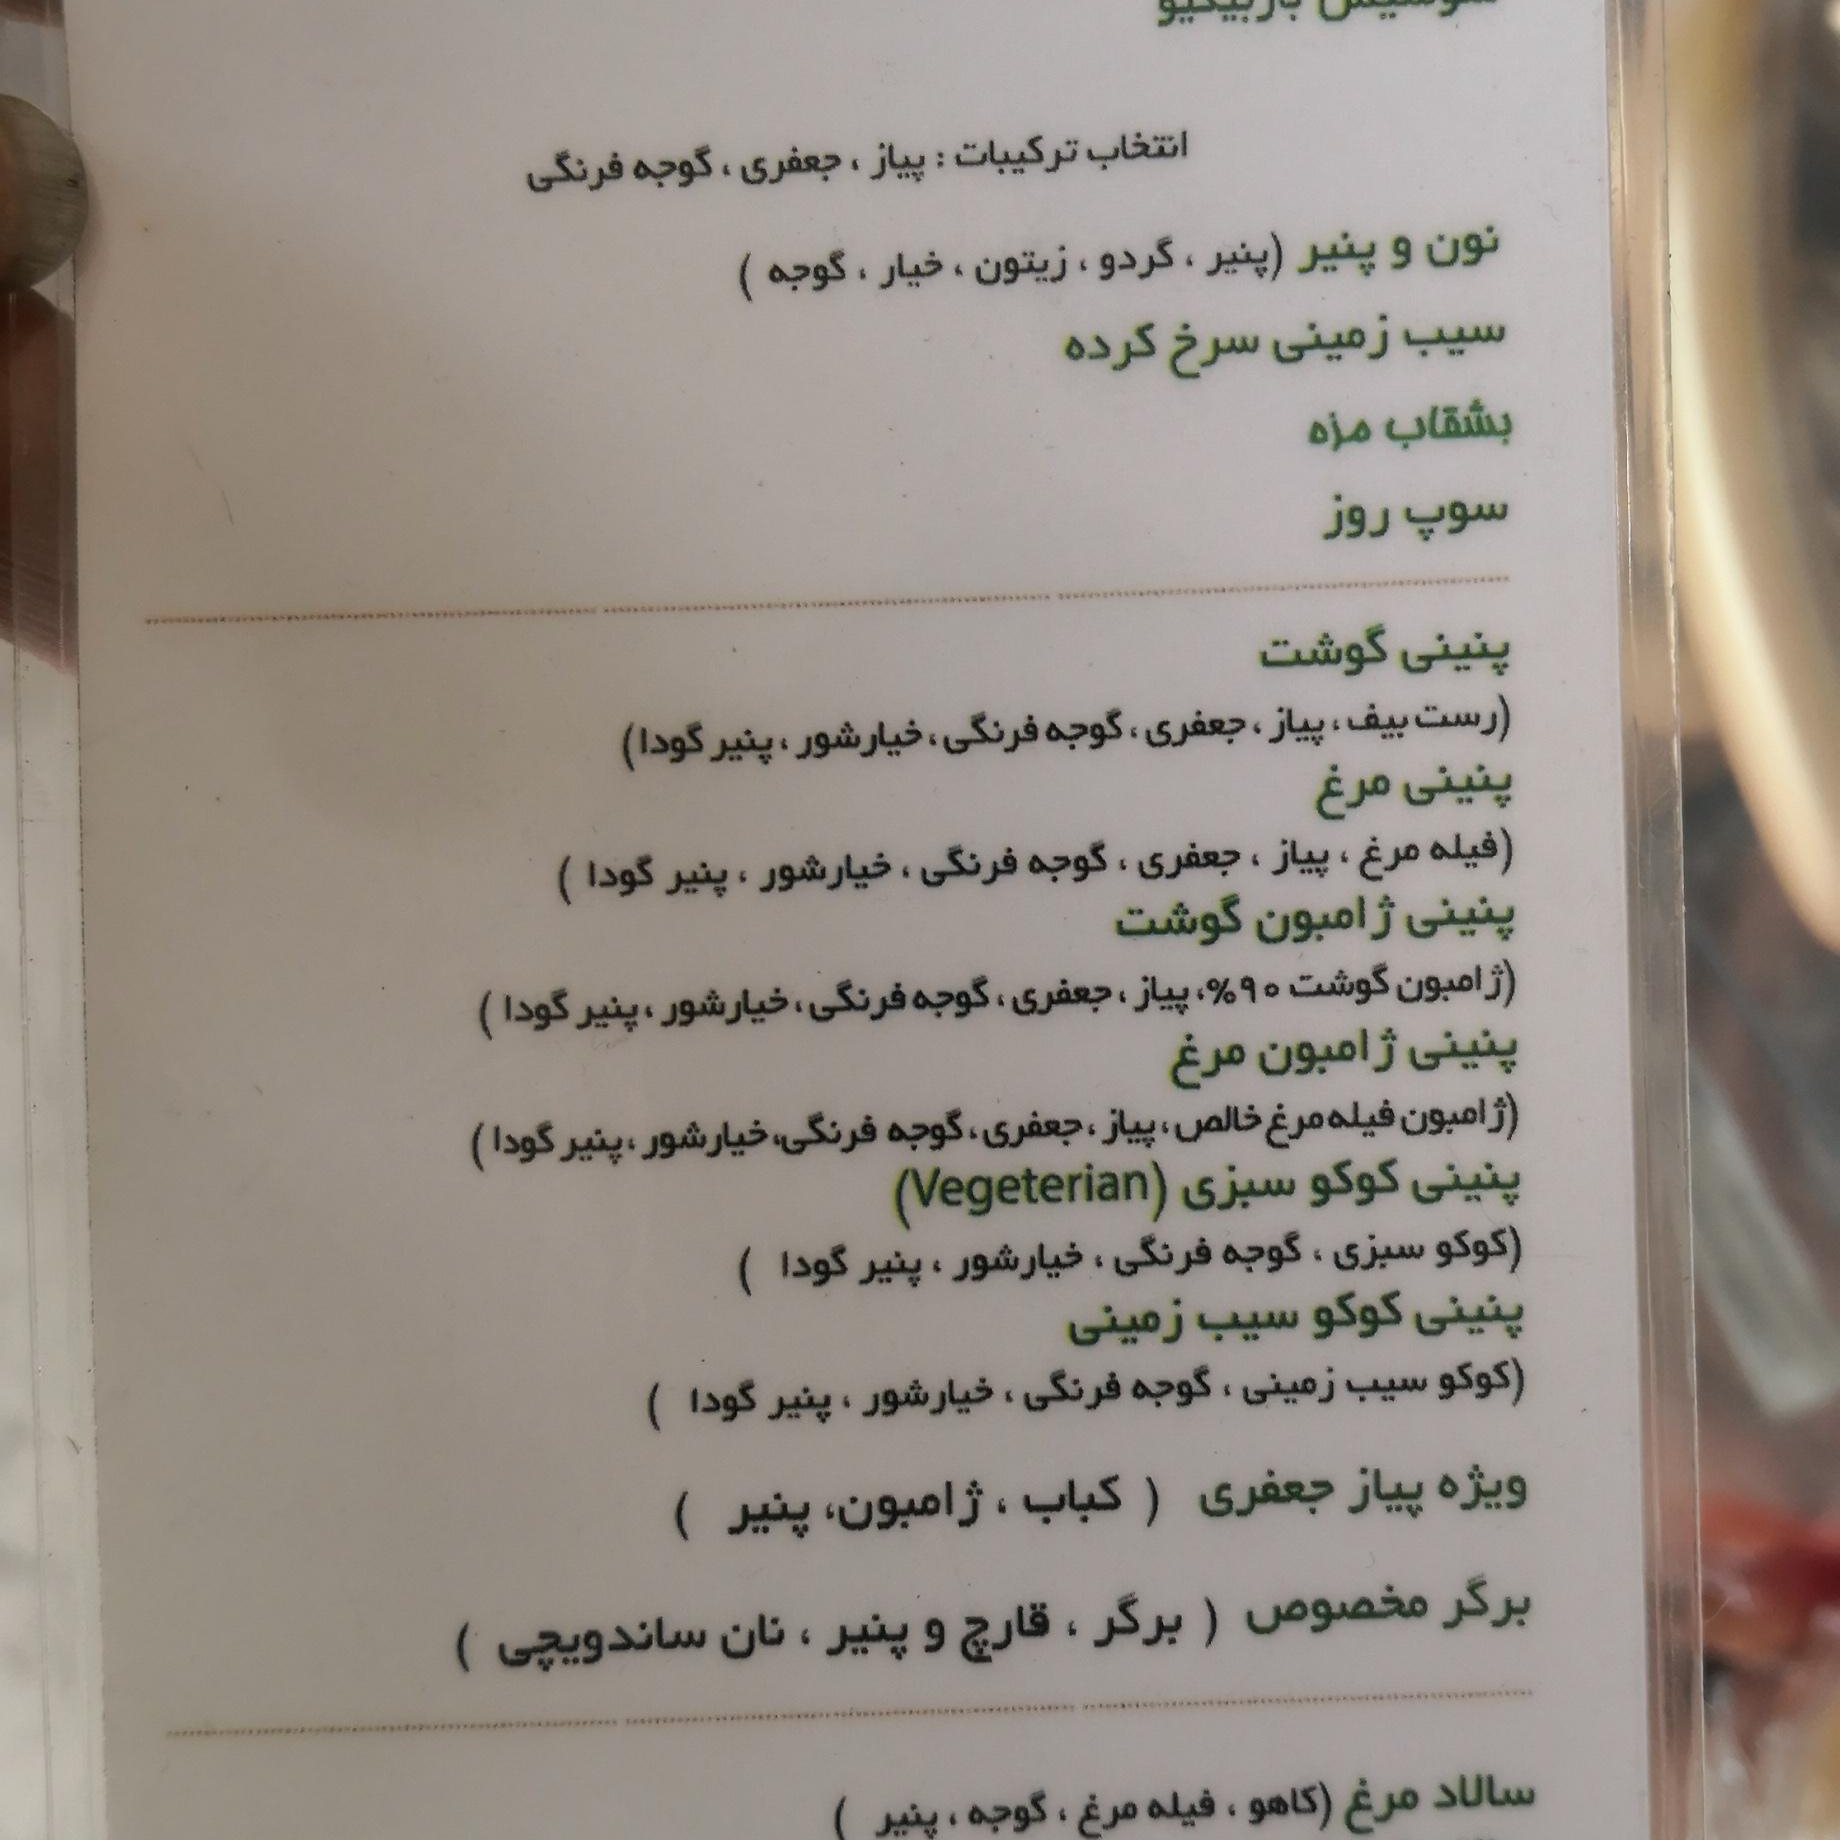 سوسیس باربیکیو
انتخاب ترکیبات : پیاز ، جعفری ، گوجه فرنگی
نون و پنیر (پنیر ، گردو ، زیتون ، خیار ، گوجه )
سیب زمینی سرخ کرده
بشقاب مزه
سوپ روز
پنینی گوشت
(رست بیف، پیاز ، جعفری ، گوجه فرنگی ، خیارشور ، پنیر گودا)
پنینی مرغ
(فیله مرغ ، پیاز ، جعفری ، گوجه فرنگی ، خیارشور ، پنیر گودا )
پنینی ژامبون گوشت
(ژامبون گوشت ۹۰%، پیاز ، جعفری ، گوجه فرنگی ، خیارشور ، پنیر گودا )
پنینی ژامبون مرغ
(ژامبون فیله مرغ خالص، پیاز ، جعفری، گوجه فرنگی، خیارشور ، پنیر گودا )
پنینی کوکو سبزی (Vegeterian)
(کوکو سبزی ، گوجه فرنگی ، خیارشور ، پنیر گودا )
پنینی کوکو سیب زمینی
(کوکو سیب زمینی ، گوجه فرنگی ، خیارشور ، پنیر گودا )
ویژه پیاز جعفری ( کباب ، ژامبون، پنیر )
برگر مخصوص ( برگر ، قارچ و پنیر ، نان ساندویچی )
سالاد مرغ (کاهو ، فیله مرغ ، گوجه ، پنیر )